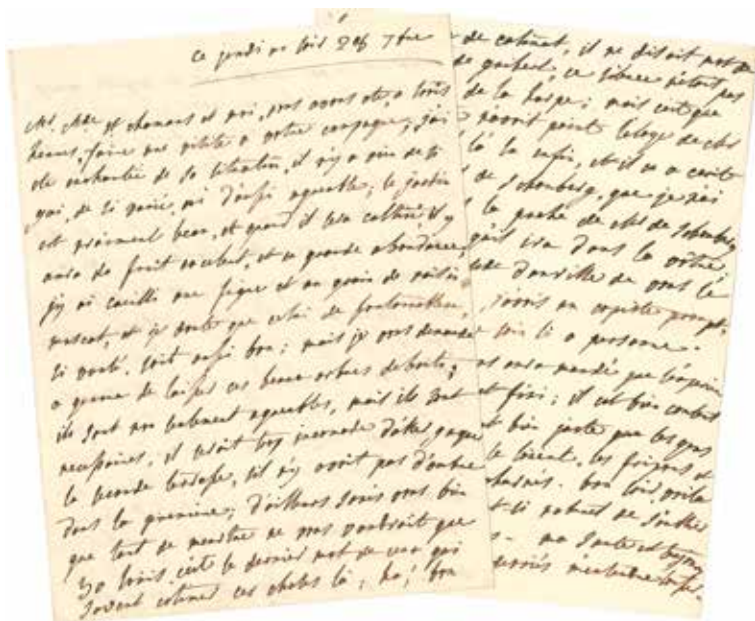 ce jeudi au soir 26 7bre
Mr. Mde. St chamans et moi, nous avons été, a trois
heures, faire une visite a votre campagne; j'ai
été enchantée de sa situation, il n'y a rien de si
gai, de si varié, ni d'aussi agreable; le jardin
est vraiment beau, et quand il sera cultivé, il y
aura du fruit excelent, et en grande abondance,
j'y ai cueilli une figue et un grain de raisin
muscat, et je doute que celui de fontainebleau,
si vanté, soit aussi bon; mais je vous demande
a genoux de laisser ces beaux arbres debouts;
ils sont non seulement agreables, mais ils sont
necessaires, il seroit trop incomode d'aller gagner
la seconde terrasse, s'il n'y avoit pas d'ombre
dans la premiere; d'ailleurs songés vous bien
que tout ce meurtre ne vous vaudroit que
30 louis, c'est le dernier mot de ceux qui
savent estimer ces choses là; ha! bon
de catinat, il ne disait mot de
de guibert, ce silence n'étant pas
de la harpe; mais c'est que
n'avoit point l'éloge de
enfin, et il m'a ecrit
de Schomberg, que je n'ai
la poche de Mr de Schomberg
ira dans la votre
d'anville de vous le
j'aurois un copiste
soit lu a personne.
aura mandé que
est fini; il est bien content
bien juste que les gens
le lisent, les fripons et
acharnés. bon soir, voila
si naturel de
ma santé est toujours